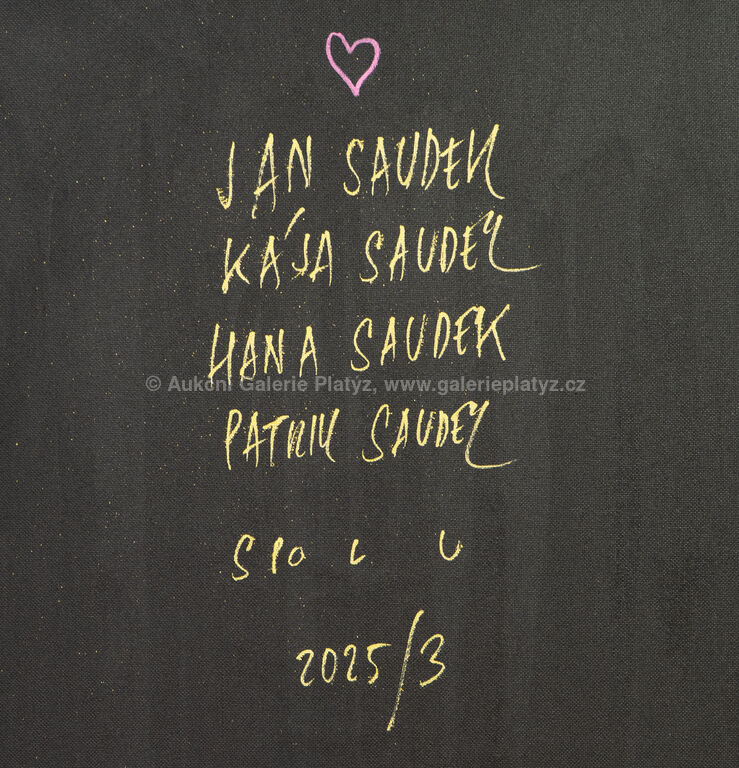 JAN SAUDEK
KÁJA SAUDEK
HANA SAUDEK
© Aukční Galerie Platýz, www.galerieplatyz.cz
PATRIK SAUDEK
SPOLU
2025/3